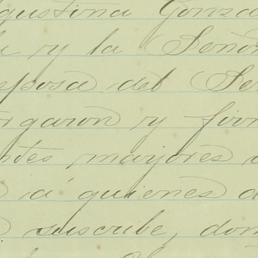 gustina Gonza
a y la Seño
esposa del Se
rgaron y fir
ntes, mayores
a quienes d
suscribe, don